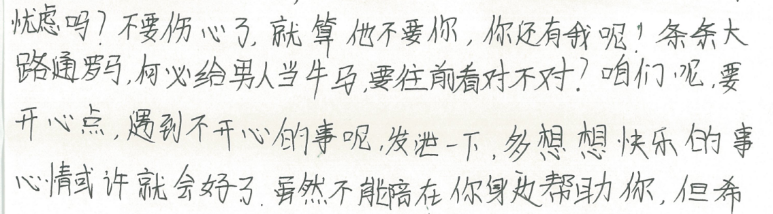 忧虑吗?不要伤心了,就算他不要你,你还有我呢!条条大
路通罗马,何必给男人当牛马,要往前看对不对?咱们呢,要
开心点,遇到不开心的事呢,发泄一下,多想想快乐的事
心情或许就会好了.虽然不能陪在你身边帮助你,但希